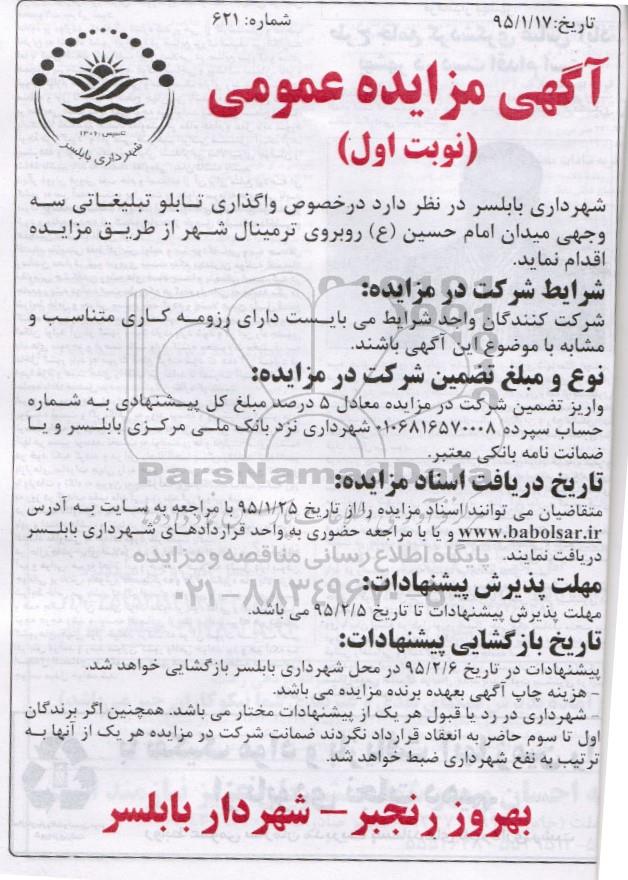 تاریخ: ۹۵/۱/۱۷
شماره: ۶۲۱
تاسیس: ۱۳۰۶
شهرداری بابلسر
آگهی مزایده عمومی
(نوبت اول)
شهرداری بابلسر در نظر دارد درخصوص واگذاری تابلو تبلیغاتی سه
وجهی میدان امام حسین (ع) روبروی ترمینال شهر از طریق مزایده
اقدام نماید.
شرایط شرکت در مزایده:
شرکت کنندگان واجد شرایط می بایست دارای رزومه کاری متناسب و
مشابه با موضوع این آگهی باشند.
نوع و مبلغ تضمین شرکت در مزایده:
واریز تضمین شرکت در مزایده معادل ۵ درصد مبلغ کل پیشنهادی به شماره
حساب سپرده ۰۱۰۶۸۱۶۵۷۰۰۰۸ شهرداری نزد بانک ملی مرکزی بابلسر و یا
ضمانت نامه بانکی معتبر.
تاریخ دریافت اسناد مزایده:
متقاضیان می توانند اسناد مزایده را از تاریخ ۹۵/۱/۲۵ با مراجعه به سایت به آدرس
www.babolsar.ir و یا با مراجعه حضوری به واحد قراردادهای شهرداری بابلسر
دریافت نمایند.
مهلت پذیرش پیشنهادات:
مهلت پذیرش پیشنهادات تا تاریخ ۹۵/۲/۵ می باشد.
تاریخ بازگشایی پیشنهادات:
پیشنهادات در تاریخ ۹۵/۲/۶ در محل شهرداری بابلسر بازگشایی خواهد شد.
- هزینه چاپ آگهی بعهده برنده مزایده می باشد.
- شهرداری در رد یا قبول هر یک از پیشنهادات مختار می باشد. همچنین اگر برندگان
اول تا سوم حاضر به انعقاد قرارداد نگردند ضمانت شرکت در مزایده هر یک از آنها به
ترتیب به نفع شهرداری ضبط خواهد شد.
بهروز رنجبر – شهردار بابلسر
ParsNamadData
پایگاه اطلاع رسانی مناقصه و مزایده
۰۲۱-۸۸۳۴۹۶۷۰-۵